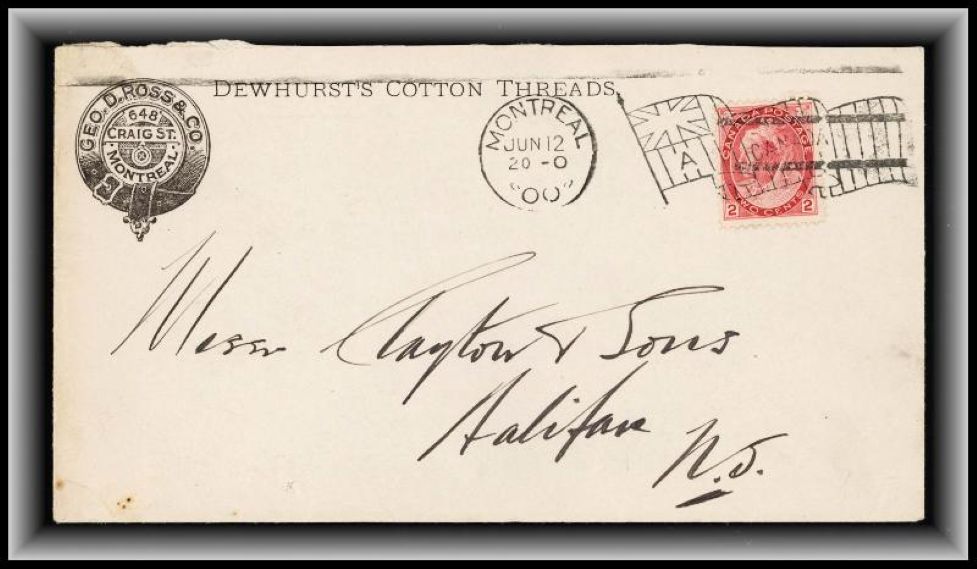 DEWHURST'S COTTON THREADS.
GEO. D. ROSS & CO.
648
CRAIG ST.
MONTREAL
MONTREAL
JUN 12
20 - 0
"00"
A
CANADA POSTAGE
2 TWO CENTS 2
Messrs Clayton & Sons
Halifax
N.S.